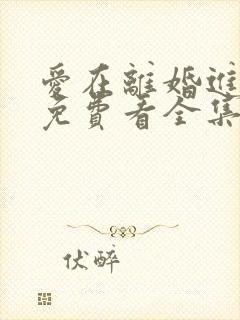 愛在離婚進
免費看全集
伏醉